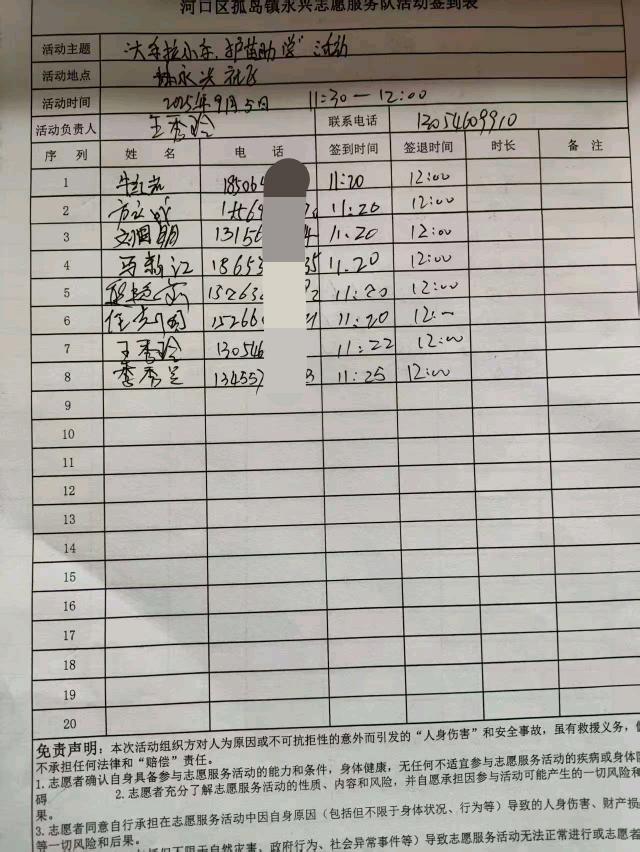 河口区孤岛镇永兴志愿服务队活动签到表
活动主题 “大手拉小手,护苗助学”活动
活动地点 永兴社区
活动时间 2025年9月5日 11:30—12:00
活动负责人 王秀玲 联系电话 13054609910
序 列 姓 名 电 话 签到时间 签退时间 时长 备 注
1 18506 11:20 12:00
2 11:20 12:00
3 13156 11:20 12:00
4 马新江 18653 35 11.20 12:00
5 11:20 12:00
6 15266 11:20
7 王秀玲 130546 11:22 12:00
8 李秀兰 134557 3 11:25 12:00
9
10
11
12
13
14
15
16
17
18
19
20
免责声明：本次活动组织方对人为原因或不可抗拒性的意外而引发的“人身伤害”和安全事故，虽有救援义务，但
不承担任何法律和“赔偿”责任。
1.志愿者确认自身具备参与志愿服务活动的能力和条件，身体健康，无任何不适宜参与志愿服务活动的疾病或身体障
碍 2.志愿者充分了解志愿服务活动的性质、内容和风险，并自愿承担因参与活动可能产生的一切风险和
果。
3.志愿者同意自行承担在志愿服务活动中因自身原因（包括但不限于身体状况、行为等）导致的人身伤害、财产损
等一切风险和后果。
包括但不限于自然灾害，政府行为、社会异常事件等）导致志愿服务活动无法正常进行或志愿者